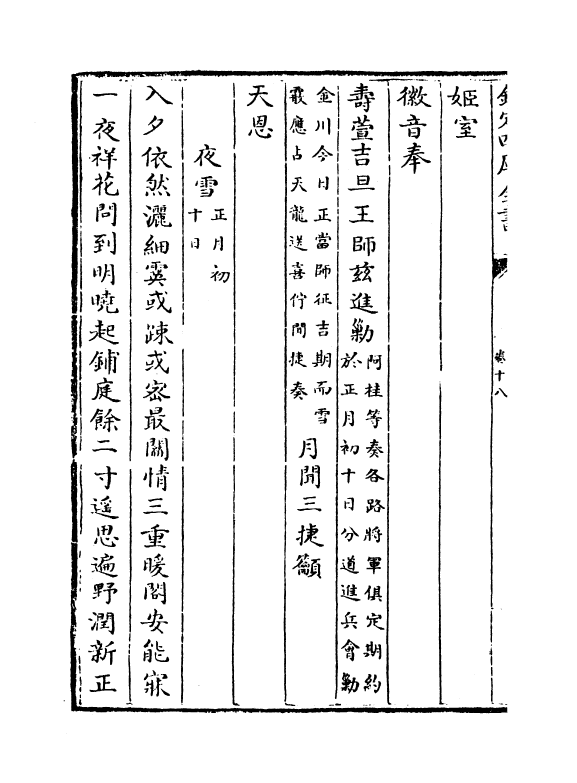 欽定四庫全書
卷十八
姬室
徽音奉
壽萱吉旦王師兹進勦阿桂等奏各路將軍俱定期約
於正月初十日分道進兵會勦
金川今日正當師征吉期而雪
應占天龍送喜佇聞捷奏月聞三捷籲
天恩
夜雪正月初
十日
入夕依然灑細霙或疎或密最關情三重暖閣安能寐
一夜祥花問到明曉起鋪庭餘二寸遥思遍野潤新正